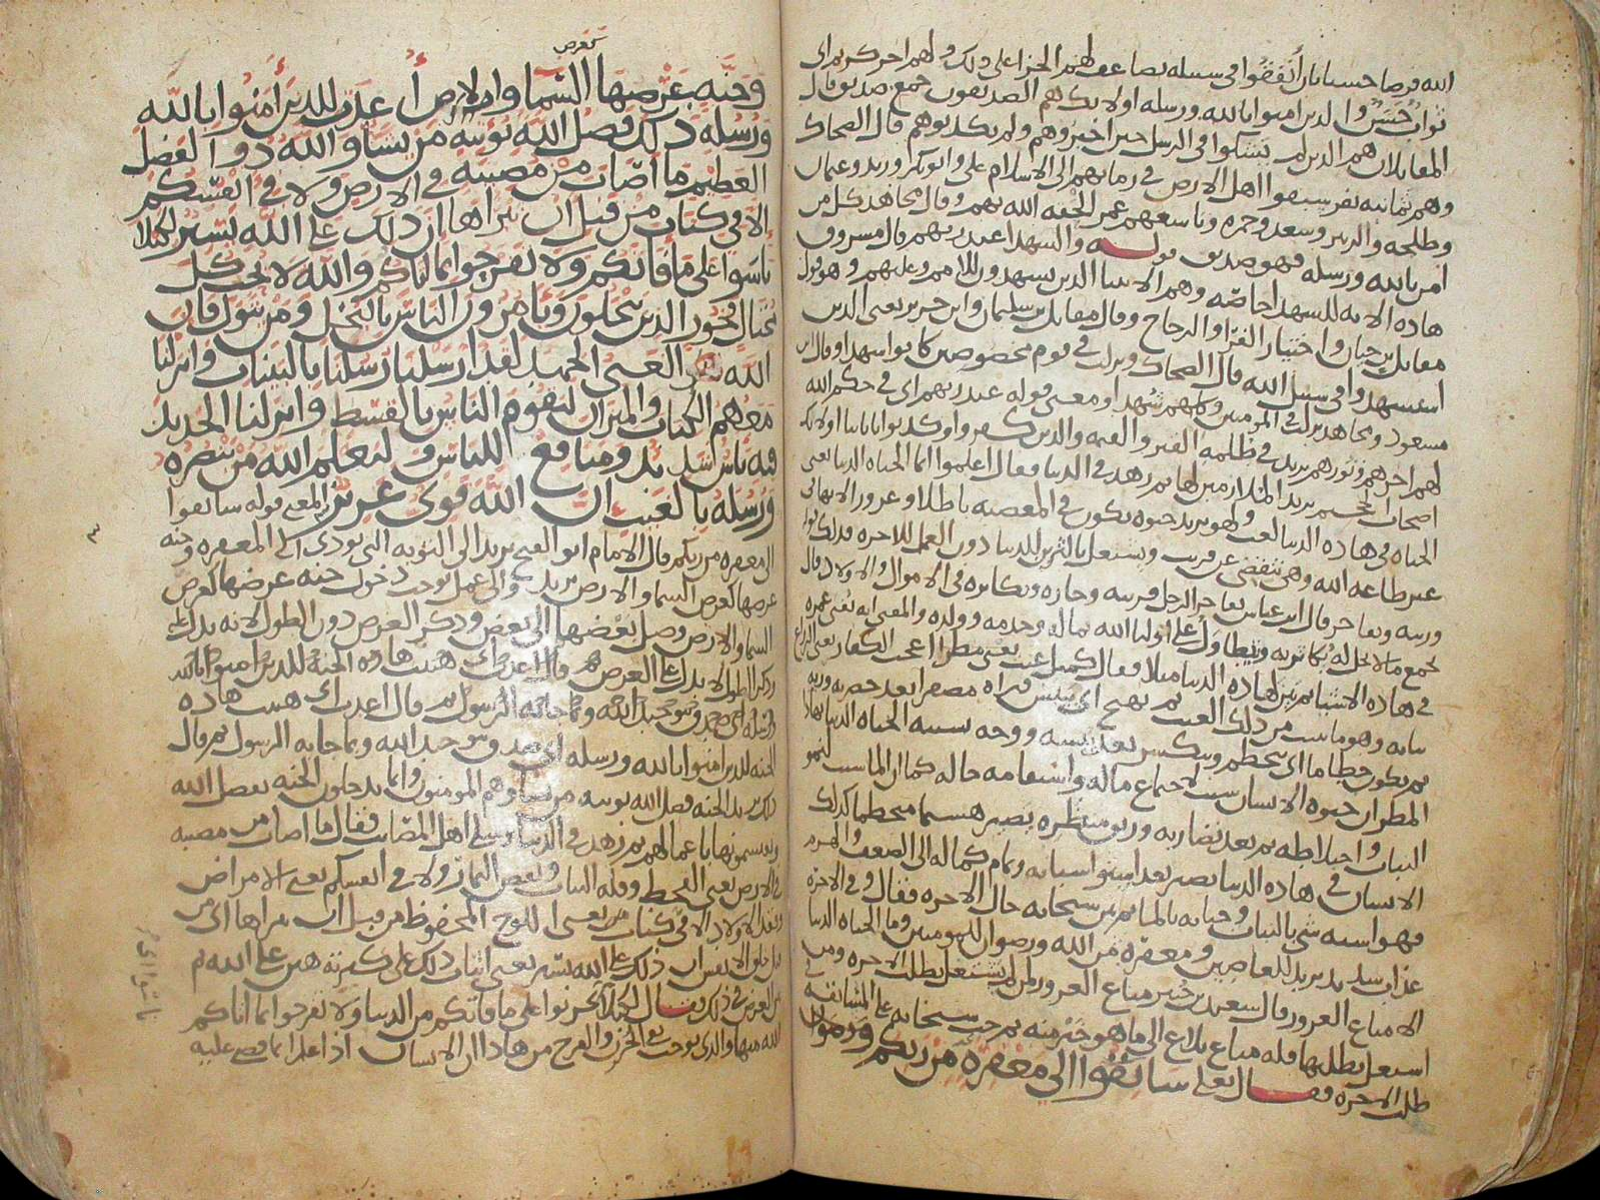 الله قرضا حسنا بان أنفقوا في سبيله يضاعف لهم الجزاء على ذلك ولهم اجر كريم اي
ثواب حسن والذين امنوا بالله ورسله اولائك هم الصديقون جمع صديق قال
المقاتلان هم الذين لم يشكوا في الرسل حين اخبروهم ولم يكذبوهم قال الضحاك
وهم ثمانيه نفر سبقوا اهل الارض في زمانهم الى الاسلام علي وابو بكر وزيد وعثمان
وطلحه والزبير وسعد وحمزه وتاسعهم عمر الحقه الله بهم وقال مجاهد كل من
امن بالله ورسله فهو صديق قوله والشهدا عند ربهم قال مسروق
هاذه الايه للشهدا خاصه وهم الانبيا الذين يشهدون للامم وعليهم وهو قول
مقاتل بن حيان واختيار الفرا والزجاج وقال مقاتل بن سليمان وابن جرير يعني الذين
استشهدوا في سبيل الله قال الضحاك ونزلت في قوم مخصوصين كانوا شهدا وقال ابن
مسعود ومجاهد نزلت في المومنين وكلهم شهدا ومعنى قوله عند ربهم اي في حكم الله
لهم اجرهم ونورهم يريد في ظلمه القبر والقيمه والذين كفروا وكذبوا باياتنا اولائك
اصحاب الجحيم يريد المنذر من لها ثم زهد في الدنيا فقال اعلموا انما الحياه الدنيا يعني
الحياه في هاذه الدنيا لعب ولهو يريد حيوه يكون في المعصيه باطلا وغرورا لانها في
غير طاعه الله وهي تنقضي عن قريب ويشتغل بالتزين للدنيا دون العمل للاخره فذلك قوله
وزينه وتفاخر قال ابن عباس يفاخر الرجل قرينه وجاره وتكاثر في الاموال والاولاد قال
يجمع ما لا يحل له يكاثر به ويتطاول على اوليا الله بماله وخدمه وولده والمعنى انه يفني عمره
في هاذه الاشيا ثم بين لهاذه الدنيا مثلا فقال كمثل غيث يعني مطرا اعجب الكفار يعني الزراع
نباته وهو ما نبت من ذلك الغيث ثم يهيج اي ييبس فتراه مصفرا بعد خضرته وريه
ثم يكون حطاما اي يتحطم وينكسر بعد يبسه ووجه تشبيه الحياه الدنيا بهاذا
المطر ان حيوه الانسان سبب لاجتماع ماله واستقامه حاله كما ان الما سبب لنمو
النبات واختلاطه ثم بعد نضارته وريق منظره يصير هشيما متحطما كذلك
الانسان في هاذه الدنيا يصير بعد استوا شبابه وتمام كماله الى الضعف والهرم
فهو اشبه شي بالنبات وحياته بالما ثم بين سبحانه حال الاخره فقال وفي الاخره
عذاب شديد يريد للعاصين ومغفره من الله ورضوان للمومنين وما الحياه الدنيا
الا متاع الغرور قال سعيد بن جبير متاع الغرور لمن لم يشتغل بطلب الاخره ومن
اشتغل بطلبها فله متاع بلاغ الى ما هو خير منه ثم حث سبحانه على المسابقه في
طلب الاخره فقال تعالى سابقوا الى مغفره من ربكم ورضوان
كعرض
وجنه عرضها السما والارض أعدت للذين أمنوا بالله
ورسله ذلك فضل الله يوتيه من يشا والله ذوا الفضل
العظيم ما أصاب من مصيبه في الارض ولا في أنفسكم
الا في كتاب من قبل ان نبراها ان ذلك على الله يسير لكيلا
تاسوا على ما فاتكم ولا تفرحوا بما اتاكم والله لا يحب كل
مختال فخور الذين يبخلون ويامرون الناس بالبخل ومن يتول فان
الله الغني الحميد لقد ارسلنا رسلنا بالبينات وانزلنا
معهم الكتاب والميزان ليقوم الناس بالقسط وانزلنا الحديد
فيه باس شديد ومنافع للناس وليعلم الله من ينصره
ورسله بالغيب ان الله قوي عزيز المعنى قوله سابقوا
الى مغفره من ربكم قال الامام ابو الفتح يريد الى التوبه التي تودي الى المغفره وجنه
عرضها كعرض السما والارض يريد والى عمل يوجب دخول جنه عرضها كعرض
السما والارض وصل بعضها الى بعض وذكر العرض دون الطول لانه يدل على
وذكر الطول لا يدل على العرض قال اعدت هيئت هاذه الجنه للذين امنوا بالله
ورسله اي صدقوا بتوحيد الله وبما جا به الرسول ثم قال اعدت هيئت هاذه
الجنه للذين امنوا بالله ورسله اي صدقوا بتوحيد الله وبما جا به الرسول ثم قال
ذلك يريد الجنه فضل الله يوتيه من يشا وهم المومنون وانما يدخلون الجنه بفضل الله
ويقتسمونها باعمالهم ثم زهد في الدنيا وسلى اهل المصائب فقال ما اصاب من مصيبه
في الارض يعني القحط وقله النبات ونقص الثمار ولا في انفسكم يعني الامراض
وفقد الاولاد الا في كتاب يعني اللوح المحفوظ من قبل ان نبراها اي من
قبل خلق الانفس ان ذلك على الله يسير يعني اثبات ذلك على كثرته هين على الله ثم
بين الغرض في ذلك فقال لكيلا تحزنوا على ما فاتكم من الدنيا ولا تفرحوا بما اتاكم
الله منها والذي يوجب نفي الحزن والفرح من هاذا ان الانسان اذا علم انما قضي عليه